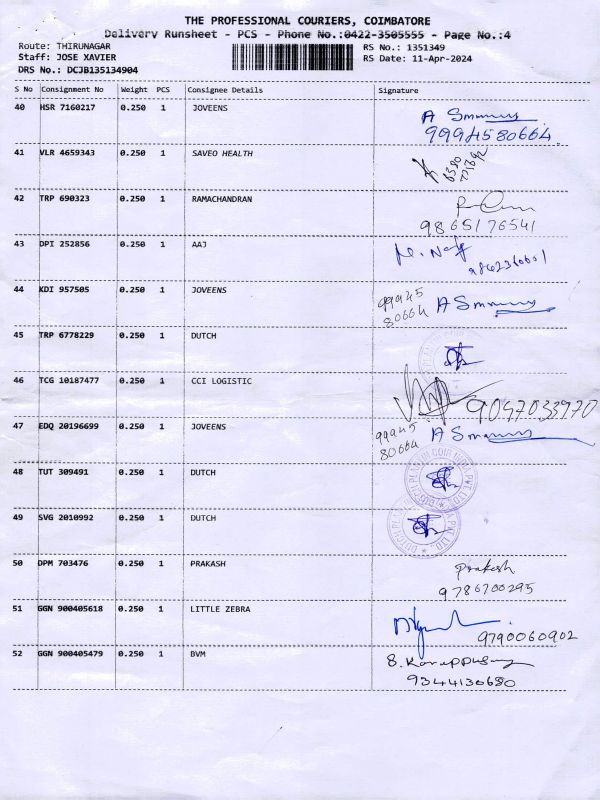 THE PROFESSIONAL COURIERS, COIMBATORE
Delivery Runsheet - PCS - Phone No.:0422-3505555 - Page No.:4
Route: THIRUNAGAR RS No.: 1351349
Staff: JOSE XAVIER RS Date: 11-Apr-2024
DRS No.: DCJB135134904
S No Consignment No Weight PCS Consignee Details Signature
40 HSR 7160217 0.250 1 JOVEENS
9994580664
41 VLR 4659343 0.250 1 SAVEO HEALTH
42 TRP 690323 0.250 1 RAMACHANDRAN
9865176541
43 DPI 252856 0.250 1 AAJ
44 KDI 957505 0.250 1 JOVEENS
99945
80664
45 TRP 6778229 0.250 1 DUTCH
46 TCG 10187477 0.250 1 CCI LOGISTIC
9047033970
47 EDQ 20196699 0.250 1 JOVEENS
99945
80664
48 TUT 309491 0.250 1 DUTCH
49 SVG 2010992 0.250 1 DUTCH
50 DPM 703476 0.250 1 PRAKASH Prakash
9786700295
51 GGN 900405618 0.250 1 LITTLE ZEBRA
9790060902
52 GGN 900405479 0.250 1 BVM
9344130680